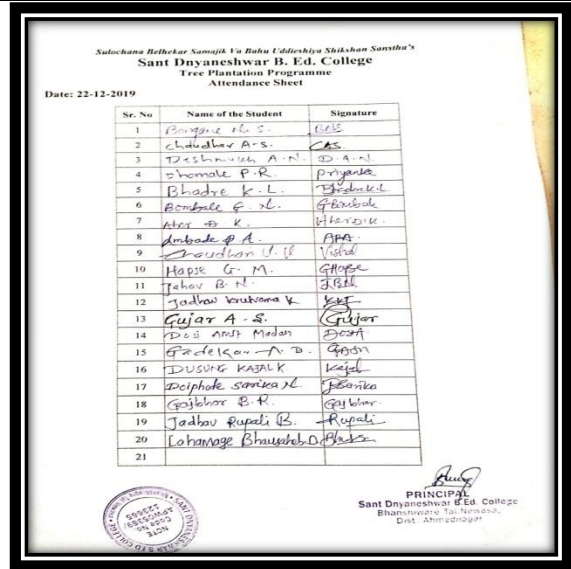 Sulochana Belhekar Samajik Va Bahu Uddieshiya Shikshan Sanstha's
Sant Dnyaneshwar B. Ed. College
Tree Plantation Programme
Attendance Sheet
Date: 22-12-2019
Sr. No Name of the Student Signature
1 N. S. BNS
2 Chaudhar A-S. CAS
3 Deshmukh A-N. D.A.N.
4 P.R. Priyanka
5 Bhadre K.L. Bhadre K.L
6 Bombale G. N. GBombale
7 Aher K.
8 Ambade A. APA.
9 Vishal
10 Hapse G. M. GHapse
11 B. N. JBN
12 Jadhav K
13 Gujar A - S. Gujar
14 Dosi Amit Madan
15 Gadekar A. D.
16 DUSUNG KAJAL K Kajal
17 Doiphode Sarika N. Sarika
18 Gajbhar B. R. Gajbhar.
19 Jadhav Rupali B. Rupali
20 Lahamage Bhausaheb D.
21
PRINCIPAL
Sant Dnyaneshwar B.Ed. College
Bhanshiware Tal. Newasa,
Dist. Ahmednagar
SANT DNYANESHWAR B ED COLLEGE
NCTE
Code No.
123665